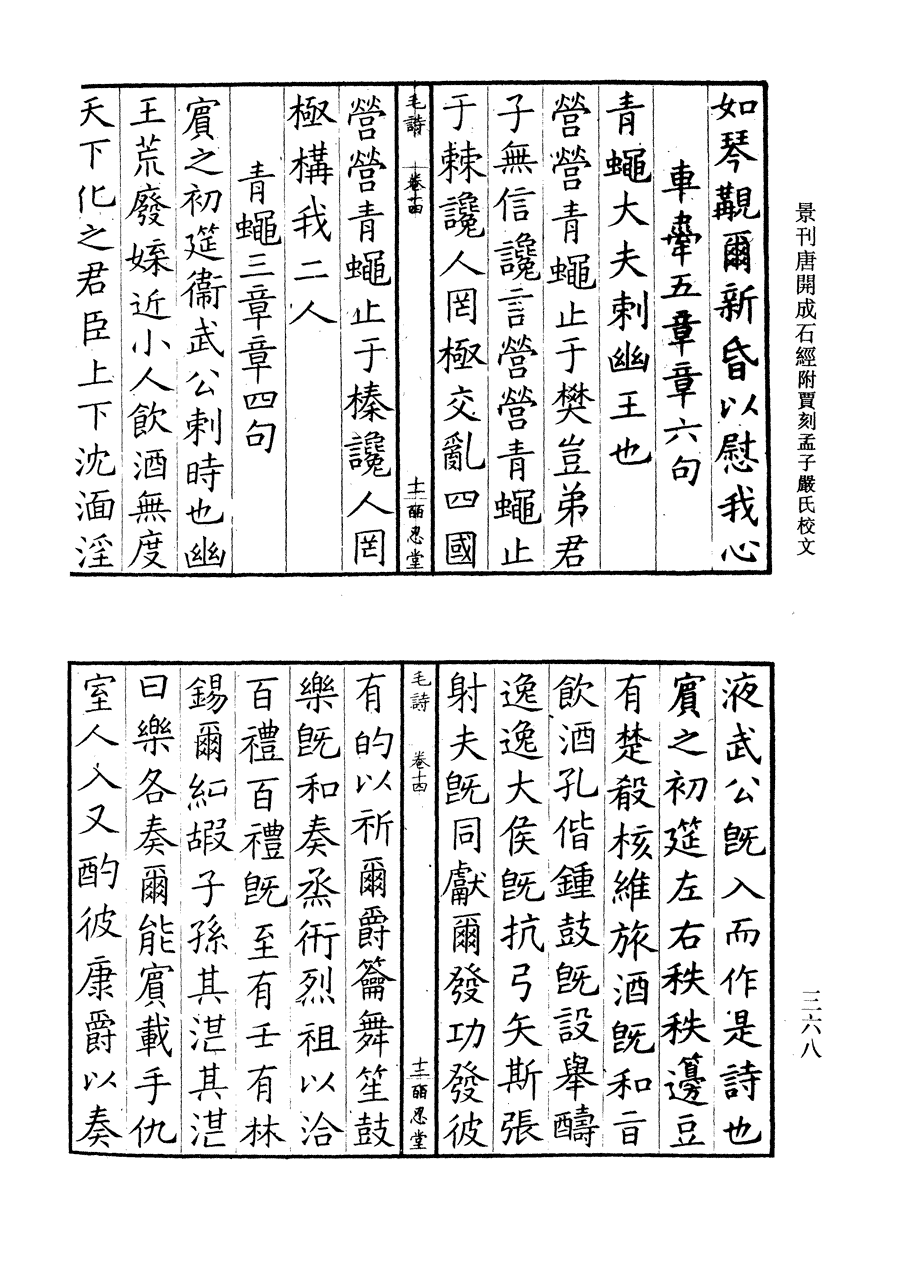 景刊唐開成石經附賈刻孟子嚴氏校文
如琴覯爾新昏以慰我心
車舝五章章六句
青蠅大夫刺幽王也
營營青蠅止于樊豈弟君
子無信讒言營營青蠅止
于棘讒人罔極交亂四國
毛詩 卷十四 十二 皕忍堂
營營青蠅止于榛讒人罔
極構我二人
青蠅三章章四句
賓之初筵衞武公刺時也幽
王荒廢媟近小人飲酒無度
天下化之君臣上下沈湎淫
液武公旣入而作是詩也
賓之初筵左右秩秩籩豆
有楚殽核維旅酒旣和旨
飲酒孔偕鍾鼓旣設舉醻
逸逸大侯旣抗弓矢斯張
射夫旣同獻爾發功發彼
毛詩 卷十四 十三 皕忍堂
有的以祈爾爵籥舞笙鼓
樂旣和奏烝衎烈祖以洽
百禮百禮旣至有壬有林
錫爾紅嘏子孫其湛其湛
曰樂各奏爾能賓載手仇
室人入又酌彼康爵以奏
三六八